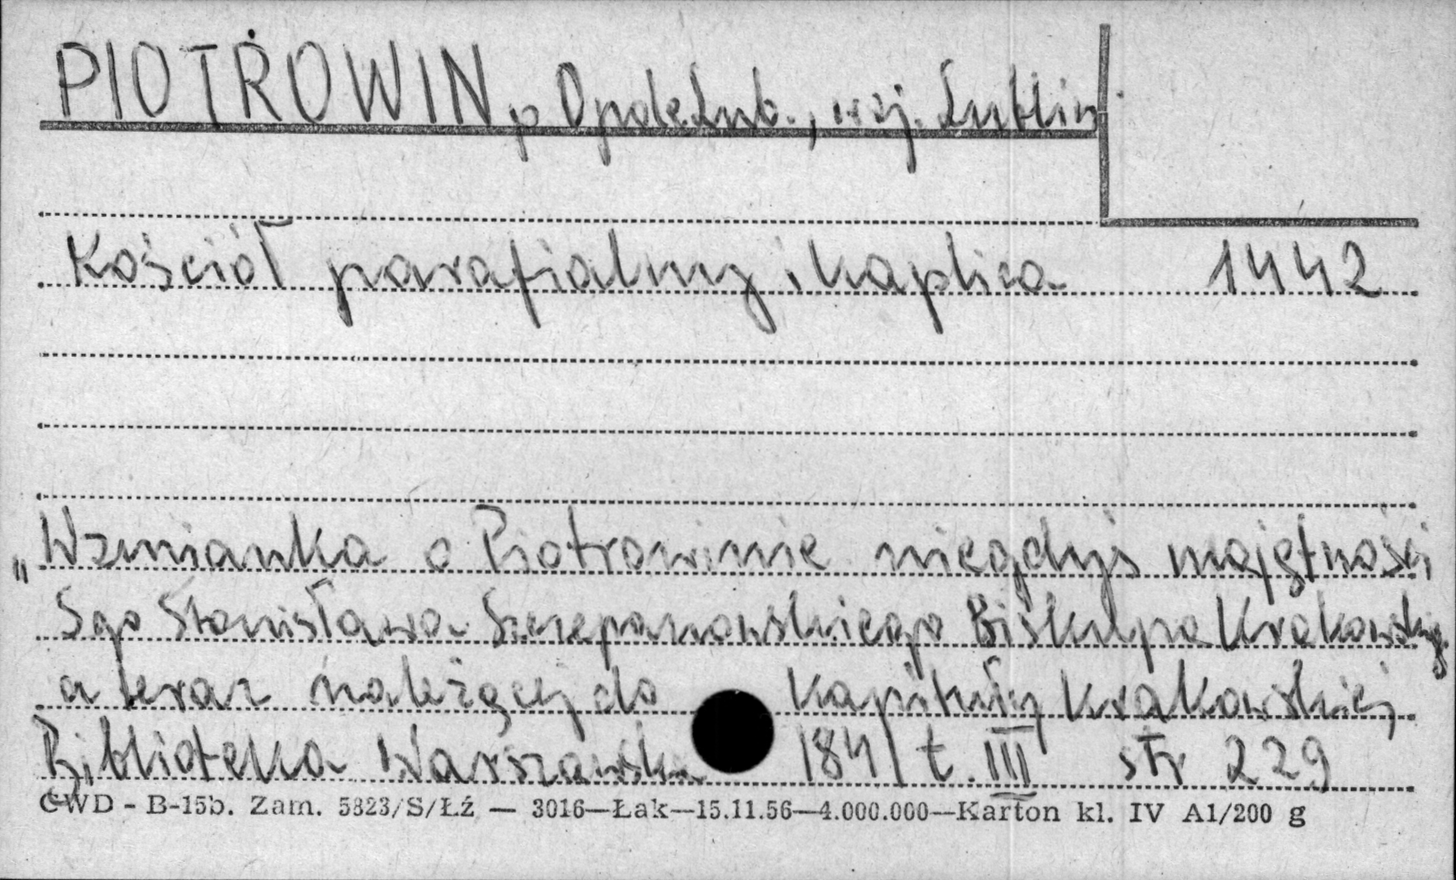 PIOTROWIN p Opole Lub., woj. Lublin
Kościół parafialny i kaplica 1442
„Wzmianka o Piotrowinie niegdyś majętności
Sgo Stanisława Szczepanowskiego Biskupa Krakowskiego
a teraz należącej do Kapituły Krakowskiej
Biblioteka Warszawska 1841 t. III str 229
CWD - B-15b. Zam. 5823/S/Łź — 3016—Łak—15.11.56—4.000.000—Karton kl. IV A1/200 g